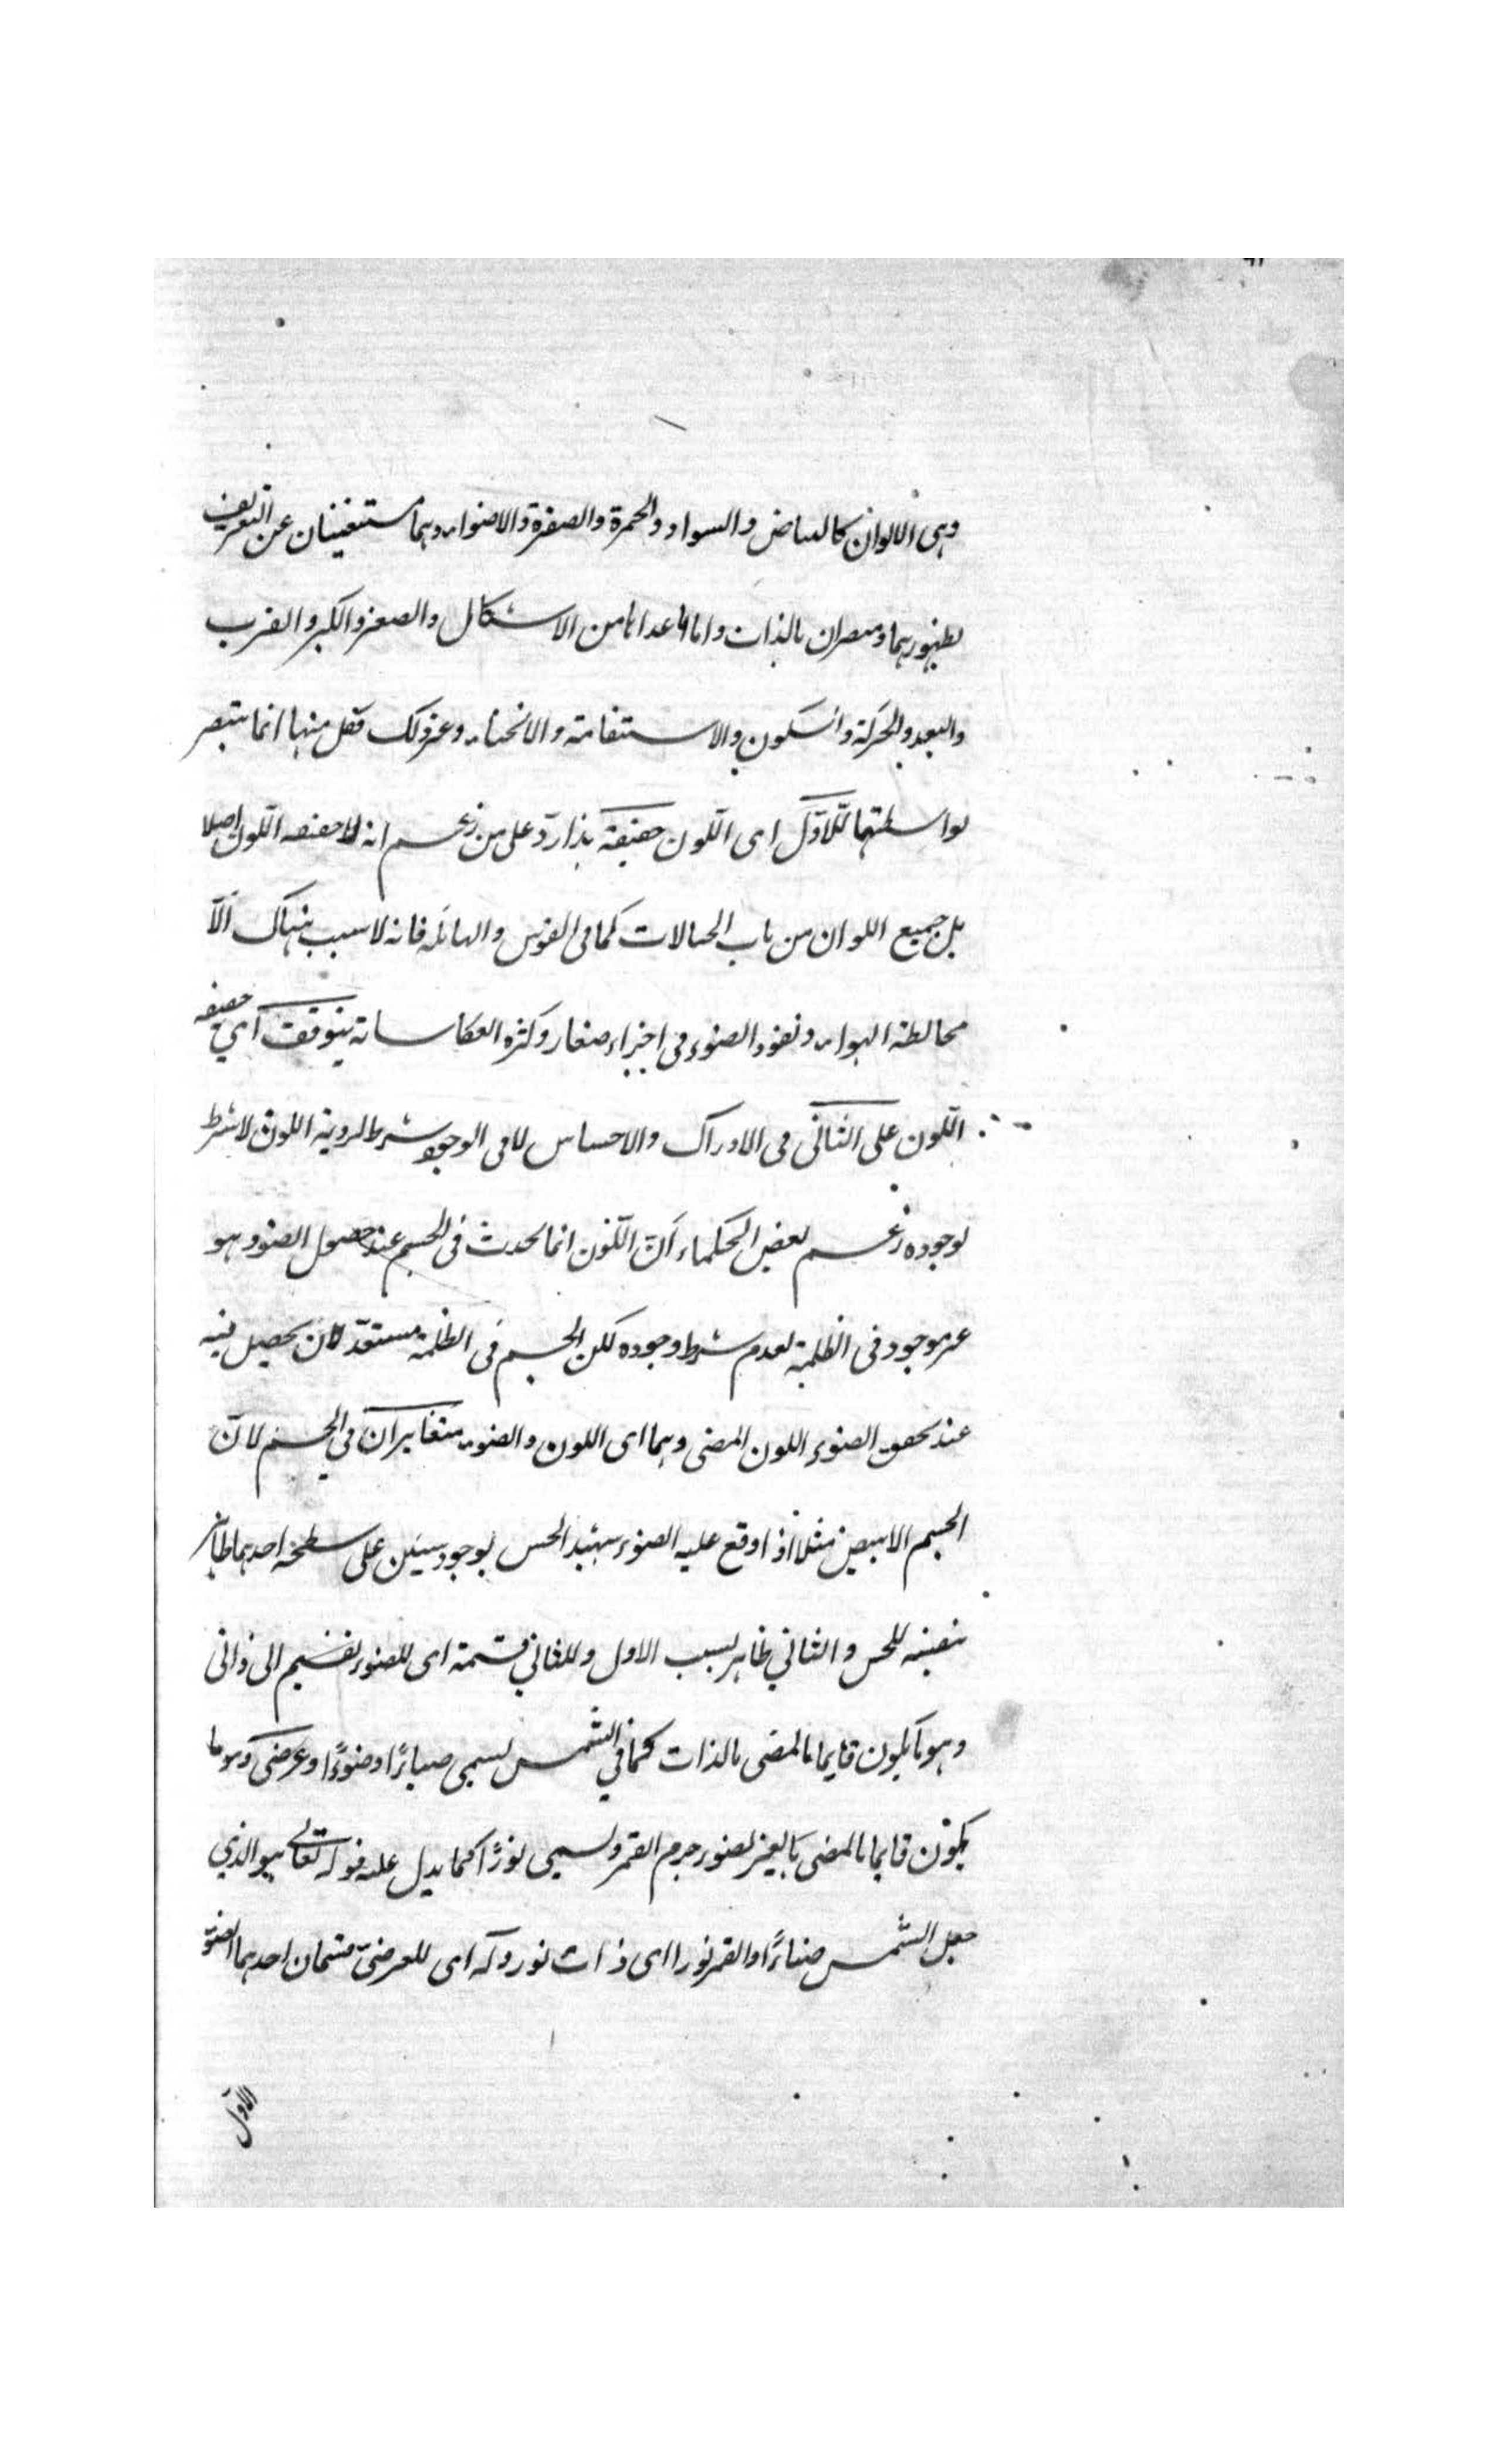 وهى الالوان كالبياض والسواد والحمرة والصفرة والاضواء وهما مستغنيان عن التعريف
لظهورهما ومبصران بالذات واما ما عداها من الاشكال والصغر والكبر والقرب
والبعد والحركة والسكون والاستقامة والانحناء وغير ذلك فكل منها انما يبصر
بواسطتهما للاول اى اللون حقيقة هذا ردّ على من زعم انه لا حقيقة للون اصلا
بل جميع اللوان من باب الخيالات كما فى القوس والهالة فانه لا سبب هناك الّا
مخالطة الهواء ونفوذ الضوء فى اجزاء صغار وكثرة انعكاساته يتوقف اى حقيقة
اللون على الثانى فى الادراك والاحساس لا فى الوجود شرط لروية اللون لا شرط
لوجوده زعم بعض الحكماء انّ اللون انما يحدث فى الجسم عند حصول الضوء وهو
غير موجود فى الظلمة لعدم شرط وجوده لكن الجسم فى الظلمة مستعدّ لان يحصل فيه
عند تحقق الضوء اللون المضى وهما اى اللون والضوء متغايران فى الجسم لانّ
الجسم الابيض مثلا اذا وقع عليه الضوء يشهد الحس بوجود شيئين على سطحه احدهما ظاهر
بنفسه للحس والثاني ظاهر بسبب الاول وللثاني قسمة اى للضوء تقسيم الى ذاتى
وهو ما يكون قايما بالمضى بالذات كما في الشمس يسمى ضياءً او ضوءًا وعرضى وهو ما
يكون قايما بالمضى بالغير لضوء جرم القمر ويسمى نورًا كما يدل عليه قوله تعالى هو الذي
جعل الشمس ضياءً والقمر نورا اى ذات نور وله اى للعرضىّ قسمان احدهما الضوء
الاول